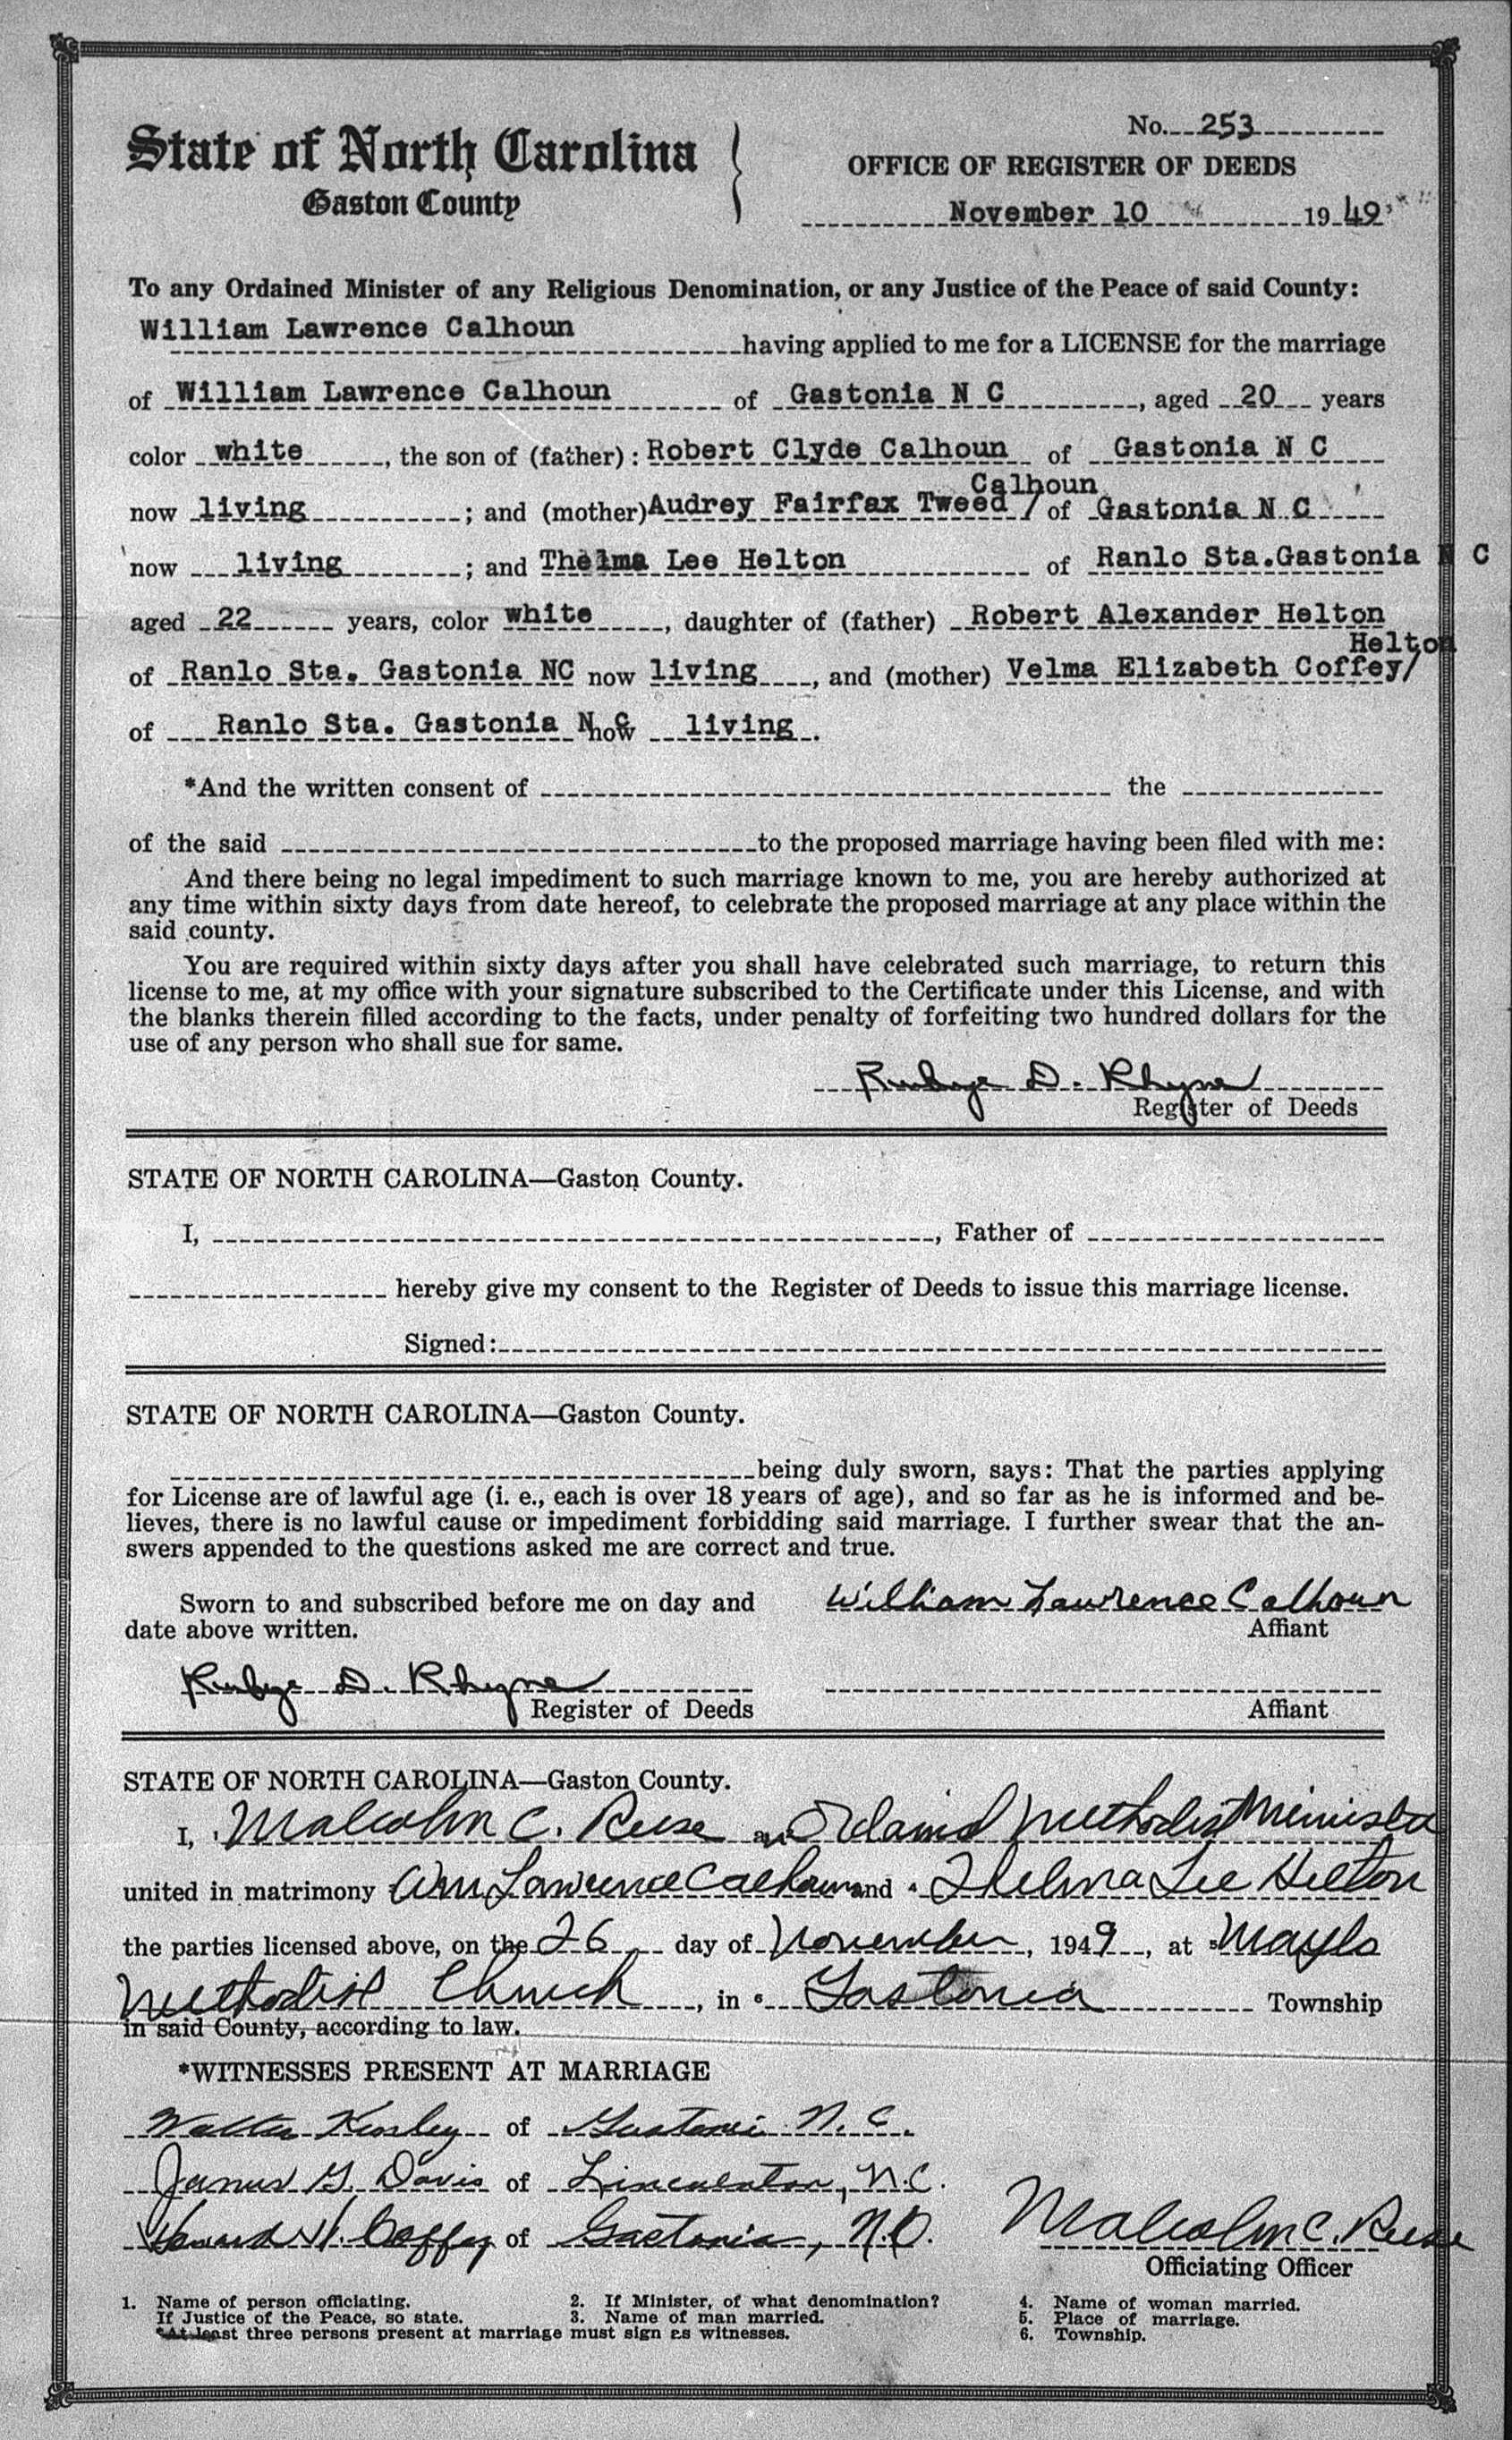 No. 253
State of North Carolina
Gaston County
OFFICE OF REGISTER OF DEEDS
November 10 1949
To any Ordained Minister of any Religious Denomination, or any Justice of the Peace of said County:
William Lawrence Calhoun having applied to me for a LICENSE for the marriage
of William Lawrence Calhoun of Gastonia N C, aged 20 years
color white, the son of (father): Robert Clyde Calhoun of Gastonia N C
Calhoun
now living; and (mother) Audrey Fairfax Tweed / of Gastonia N C
now living; and Thelma Lee Helton of Ranlo Sta.Gastonia N C
aged 22 years, color white, daughter of (father) Robert Alexander Helton
Helton
of Ranlo Sta. Gastonia NC now living, and (mother) Velma Elizabeth Coffey/
of Ranlo Sta. Gastonia N C now living.
*And the written consent of the
of the said to the proposed marriage having been filed with me:
And there being no legal impediment to such marriage known to me, you are hereby authorized at
any time within sixty days from date hereof, to celebrate the proposed marriage at any place within the
said county.
You are required within sixty days after you shall have celebrated such marriage, to return this
license to me, at my office with your signature subscribed to the Certificate under this License, and with
the blanks therein filled according to the facts, under penalty of forfeiting two hundred dollars for the
use of any person who shall sue for same.
Rubye D. Rhyne
Register of Deeds
STATE OF NORTH CAROLINA—Gaston County.
I, , Father of
hereby give my consent to the Register of Deeds to issue this marriage license.
Signed:
STATE OF NORTH CAROLINA—Gaston County.
being duly sworn, says: That the parties applying
for License are of lawful age (i. e., each is over 18 years of age), and so far as he is informed and be-
lieves, there is no lawful cause or impediment forbidding said marriage. I further swear that the an-
swers appended to the questions asked me are correct and true.
Sworn to and subscribed before me on day and
date above written.
William Lawrence Calhoun
Affiant
Rubye D. Rhyne
Register of Deeds
Affiant
STATE OF NORTH CAROLINA—Gaston County.
I, Malcolm C. Reese an Ordained Methodist Minister
united in matrimony Wm Lawrence Calhoun and Thelma Lee Helton
the parties licensed above, on the 26 day of November, 1949, at Maylo
Methodist Church, in Gastonia Township
in said County, according to law.
*WITNESSES PRESENT AT MARRIAGE
Walter of Gastonia N. C.
James G. Davis of Lincolnton, N.C.
H. Coffey of Gastonia, N.C.
Malcolm C. Reese
Officiating Officer
1. Name of person officiating.
If Justice of the Peace, so state.
*At least three persons present at marriage must sign as witnesses.
2. If Minister, of what denomination?
3. Name of man married.
4. Name of woman married.
5. Place of marriage.
6. Township.